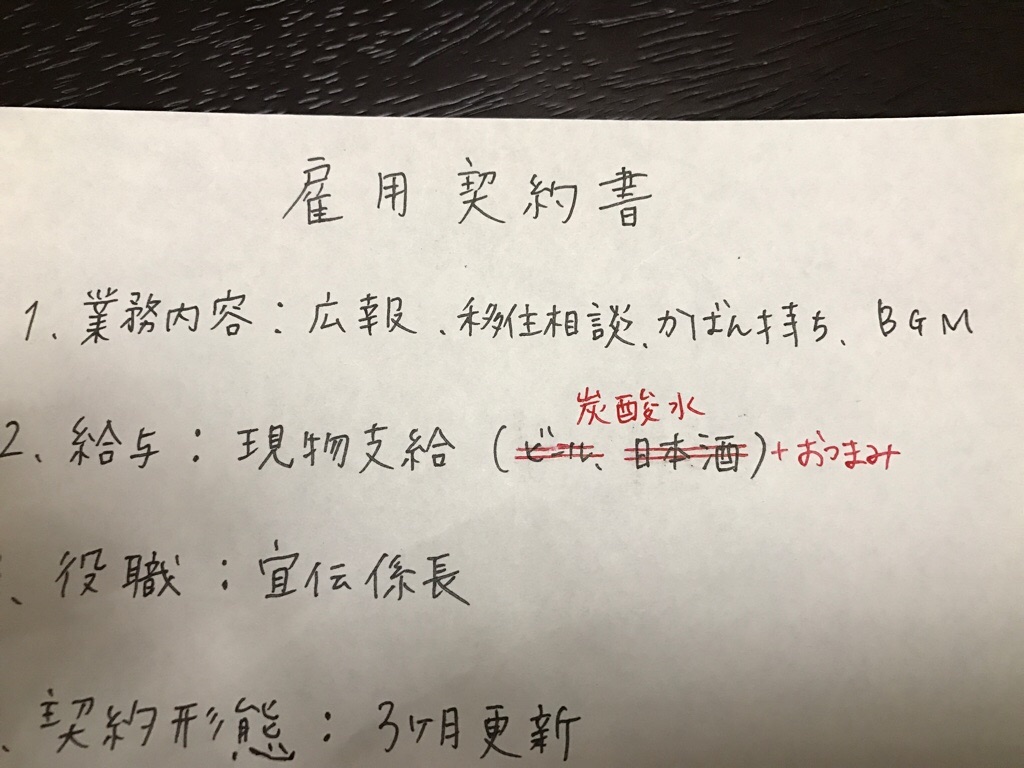 雇用契約書
1、業務内容：広報、移住相談、かばん持ち、BGM
炭酸水
2、給与：現物支給（ビール、日本酒）+おつまみ
、役職：宣伝係長
、契約形態：3ヶ月更新